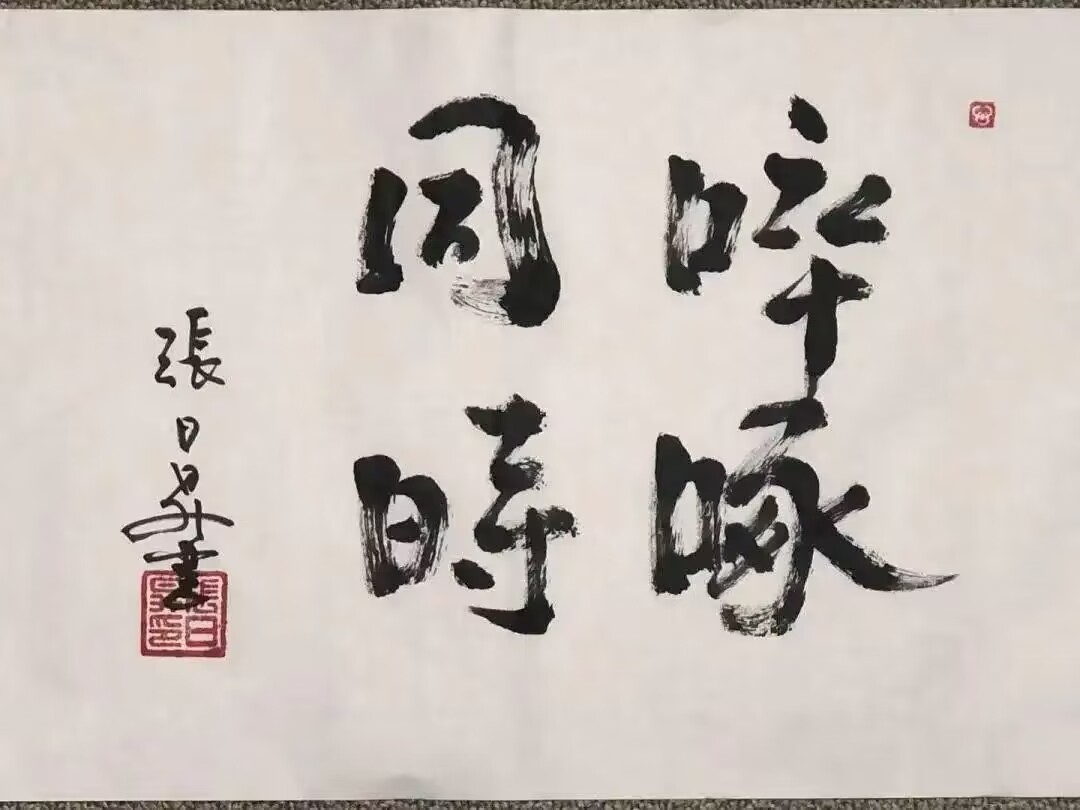 啐啄
同時
張日昇書